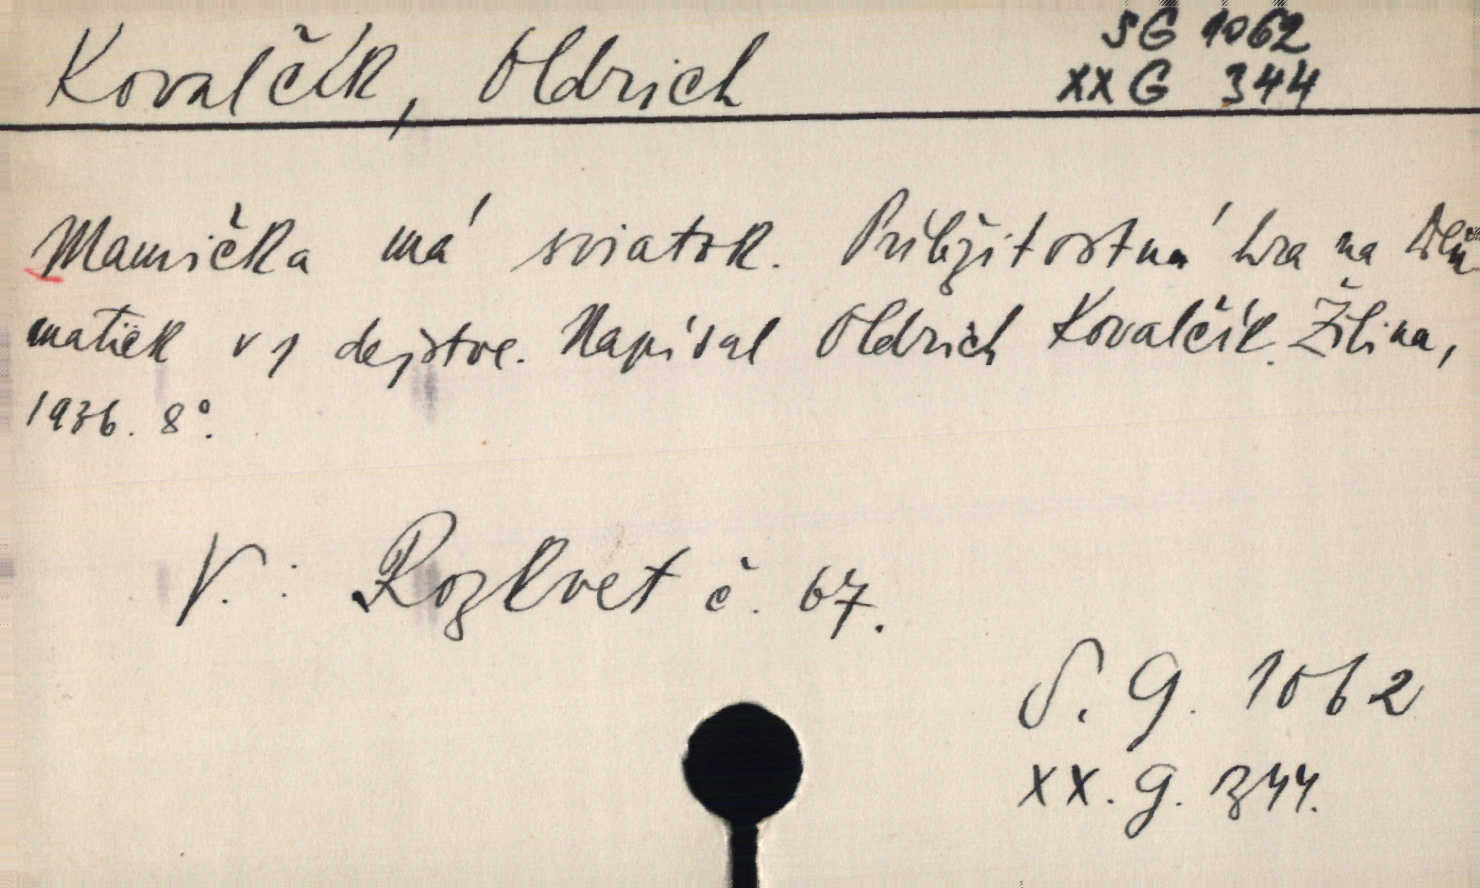 Kovalčík, Oldrich
SG 1062
XX G 344
Mamička má sviatok. Príležitostná hra na Deň
matiek v 1 dejstve. Napísal Oldrich Kovalčík. Žilina,
1936. 8°.
V.: Rozkvet č. 67.
S. G. 1062
XX. G. 344.